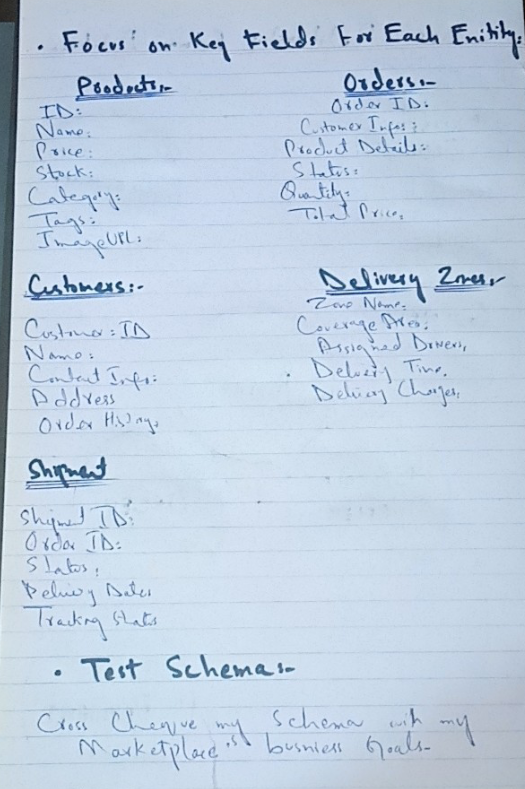 • Focus on Key Fields For Each Enitity:
Products:-
ID:
Name:
Price:
Stock:
Category:
Tags:
ImageURL:
Orders:-
Order ID:
Customer Infos:
Product Details:
Status:
Quantity:
Total Price:
Customers:-
Customer: ID
Name:
Contact Info:
Address
Order History
Delivery Zones:-
Zone Name:
Coverage Area:
Assigned Drivers,
Delivery Time,
Delivery Charges,
Shipment
Shipment ID:
Order ID:
Status,
Delivery Dates
Tracking Status
• Test Schema:-
Cross Cheque my Schema with my
Marketplace's business Goals-